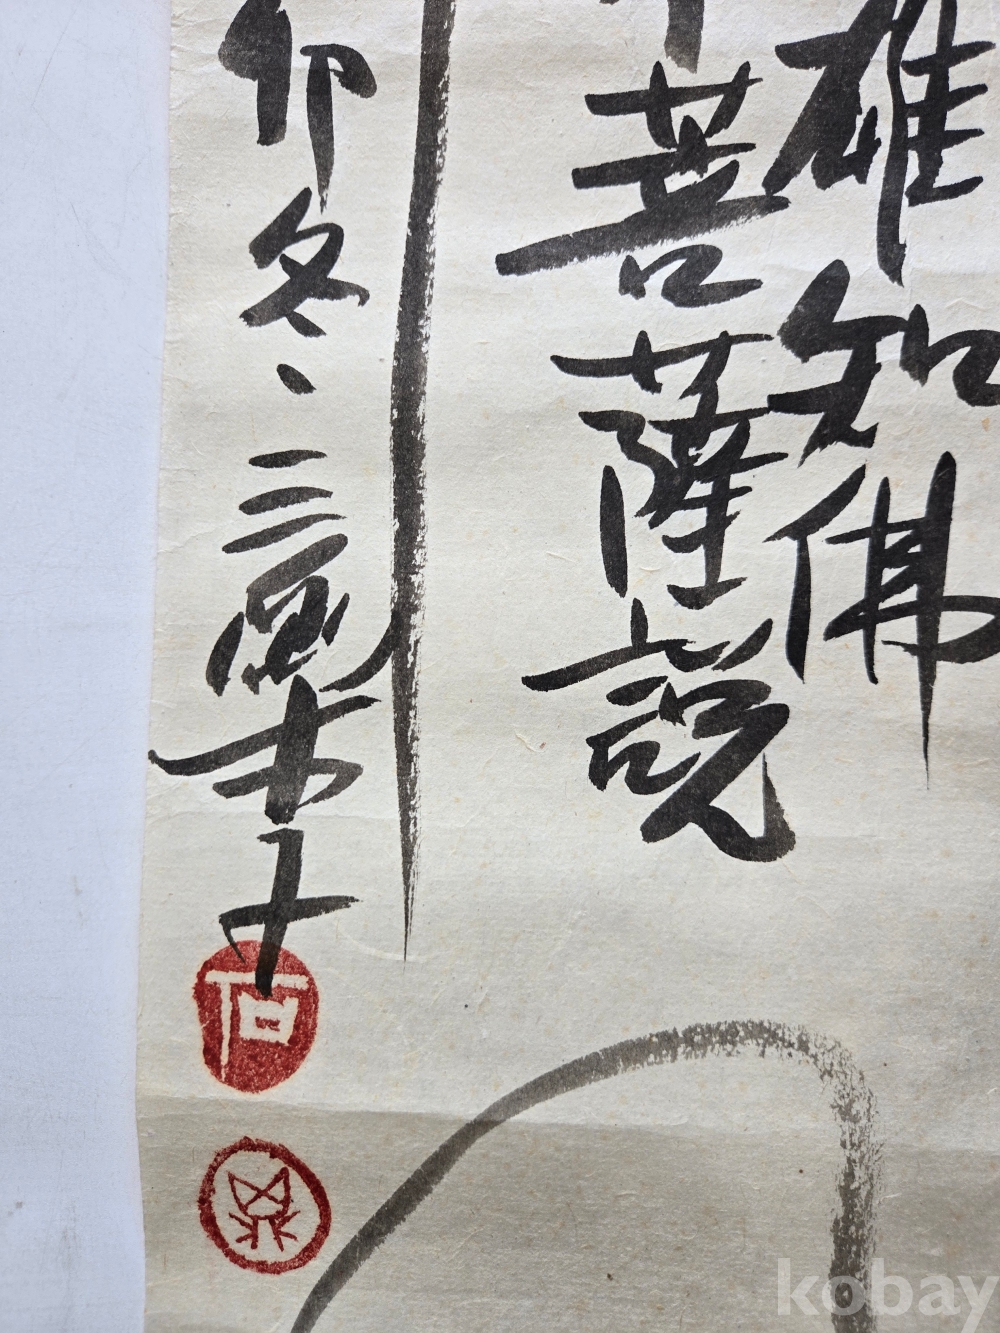 雄知佛
菩薩說
卯冬、三
石
kobay